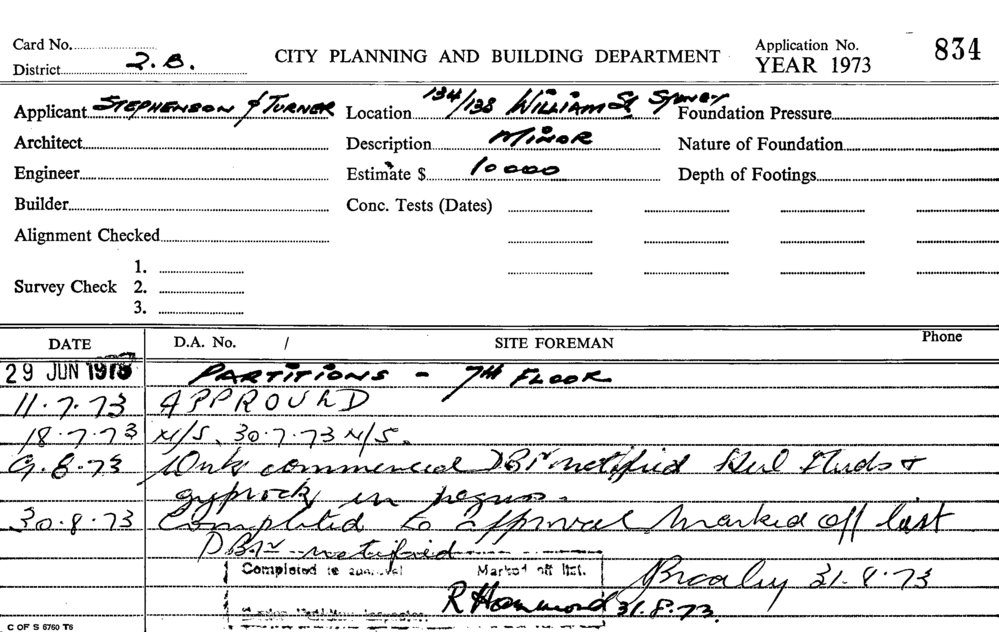 Card No.
District 2.B.
CITY PLANNING AND BUILDING DEPARTMENT
Application No. 834
YEAR 1973
Applicant STEPHENSON & TURNER
Location 134/138 WILLIAM St SYDNEY
Foundation Pressure
Architect
Description MINOR
Nature of Foundation
Engineer
Estimate $ 10000
Depth of Footings
Builder
Conc. Tests (Dates)
Alignment Checked
Survey Check 1.
2.
3.
DATE D.A. No. / SITE FOREMAN Phone
29 JUN 1973 PARTITIONS - 7TH FLOOR
11.7.73 APPROVED
18.7.73 N/S. 30.7.73 N/S.
9.8.73 Work commenced DBI notified Steel Studs &
gyprock in
30.8.73 Completed to approval Marked off list
notified
Completed to approval Marked off list.
31.8.73
R Hammond 31.8.73.
C OF S 6760 T6